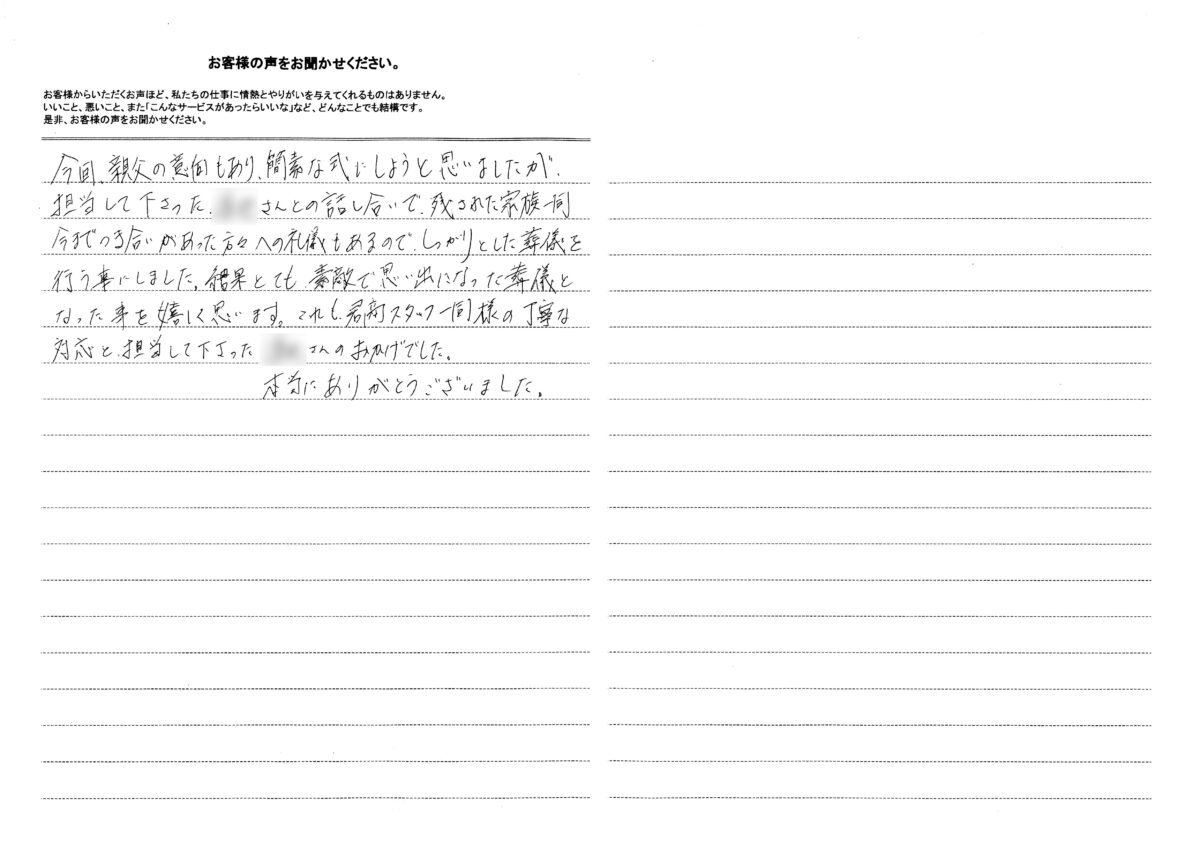 お客様の声をお聞かせください。
お客様からいただくお声ほど、私たちの仕事に情熱とやりがいを与えてくれるものはありません。
いいこと、悪いこと、また「こんなサービスがあったらいいな」など、どんなことでも結構です。
是非、お客様の声をお聞かせください。
今回、親父の意向もあり、簡素な式にしようと思いましたが、
担当して下さった、さんとの話し合いで、残された家族一同
今までつき合いがあった方々への礼儀もあるので、しっかりとした葬儀を
行う事にしました。結果とても、素敵で思い出になった葬儀と
なった事を嬉しく思います。これも、スタッフ一同様の丁寧な
対応と、担当して下さった さんのおかげでした。
本当にありがとうございました。